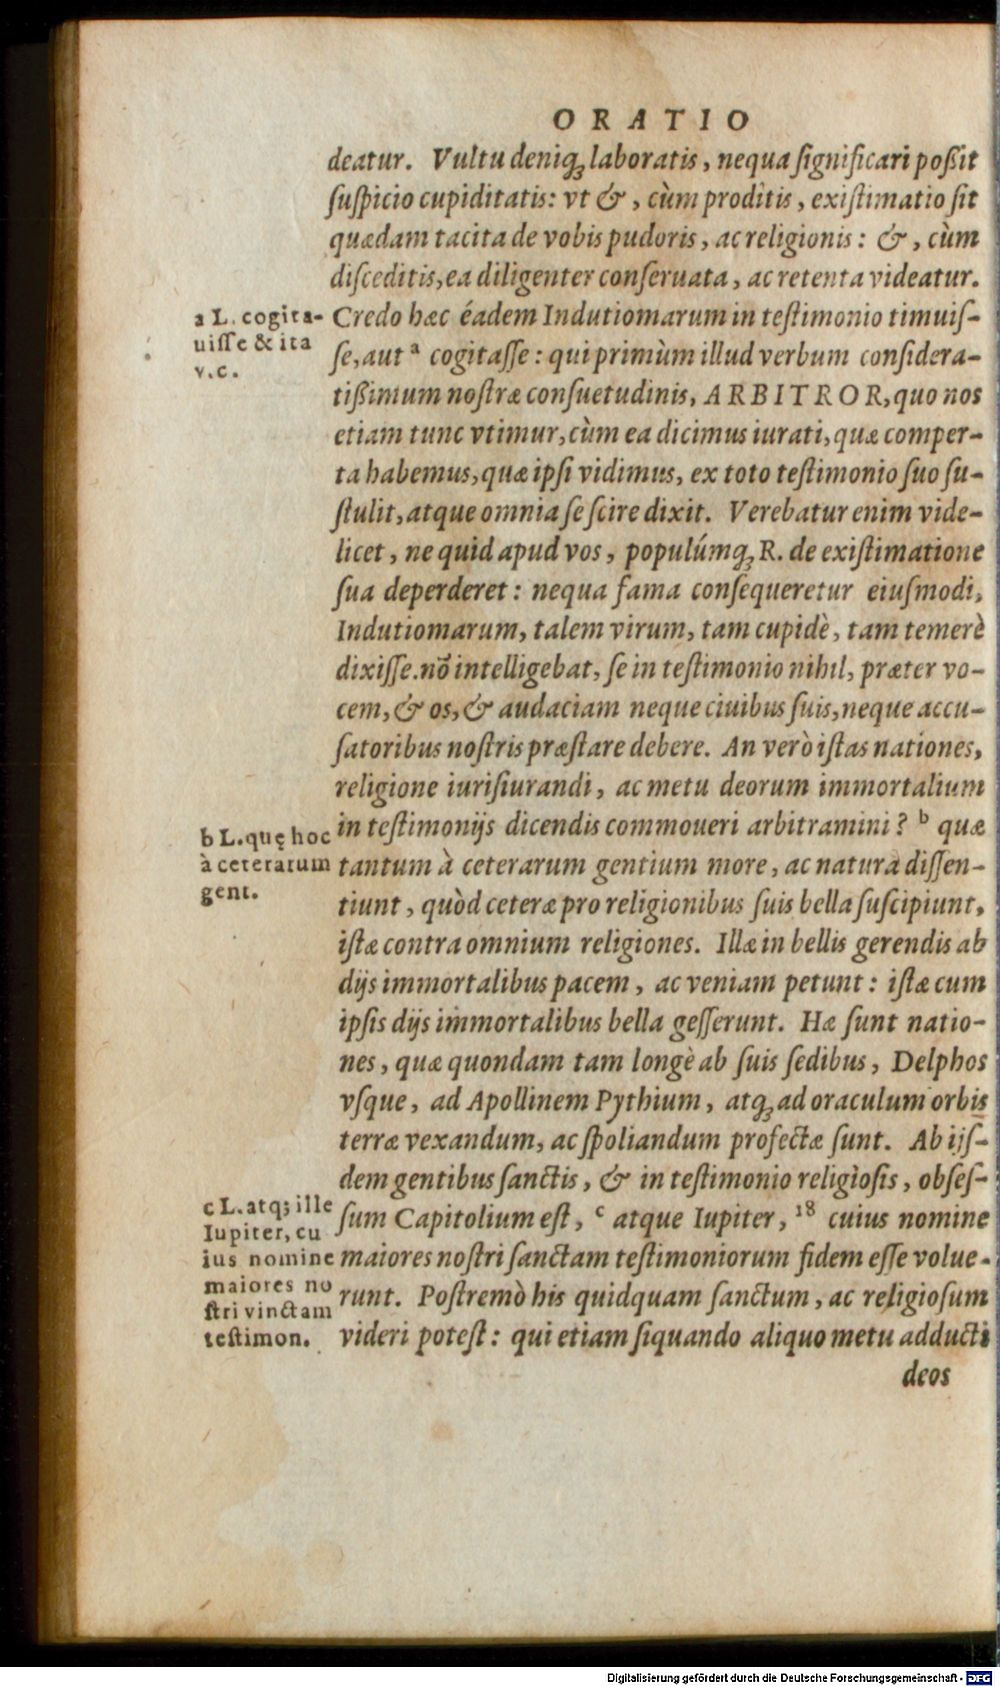 ORATIO
deatur. Vultu deniq́ꝫ laboratis, nequa ſignificari poßit
ſuſpicio cupiditatis: vt &, cùm proditis, exiſtimatio ſit
quædam tacita de vobis pudoris, ac religionis: &, cùm
diſceditis, ea diligenter conſeruata, ac retenta videatur.
Credo hæc éadem Indutiomarum in teſtimonio timuiſ-
ſe, aut ᵃ cogitaſſe: qui primùm illud verbum conſidera-
tißimum noſtræ conſuetudinis, ARBITROR, quo nos
etiam tunc vtimur, cùm ea dicimus iurati, quæ comper-
ta habemus, quæ ipſi vidimus, ex toto teſtimonio ſuo ſu-
ſtulit, atque omnia ſe ſcire dixit. Verebatur enim vide-
licet, ne quid apud vos, populúmqꝫ R. de exiſtimatione
ſua deperderet: nequa fama conſequeretur eiuſmodi,
Indutiomarum, talem virum, tam cupidè, tam temerè
dixiſſe. nō intelligebat, ſe in teſtimonio nihil, præter vo-
cem, & os, & audaciam neque ciuibus ſuis, neque accu-
ſatoribus noſtris præſtare debere. An verò iſtas nationes,
religione iuriſiurandi, ac metu deorum immortalium
in teſtimonijs dicendis commoueri arbitramini? ᵇ quæ
tantum à ceterarum gentium more, ac natura diſſen-
tiunt, quòd ceteræ pro religionibus ſuis bella ſuſcipiunt,
iſtæ contra omnium religiones. Illæ in bellis gerendis ab
dijs immortalibus pacem, ac veniam petunt: iſtæ cum
ipſis dijs immortalibus bella geſſerunt. Hæ ſunt natio-
nes, quæ quondam tam longè ab ſuis ſedibus, Delphos
vſque, ad Apollinem Pythium, atqꝫ ad oraculum orbis
terræ vexandum, ac ſpoliandum profectæ ſunt. Ab ijſ-
dem gentibus ſanctis, & in teſtimonio religioſis, obſeſ-
ſum Capitolium eſt, ᶜ atque Iupiter, ¹⁸ cuius nomine
maiores noſtri ſanctam teſtimoniorum fidem eſſe volue-
runt. Poſtremò his quidquam ſanctum, ac religioſum
videri poteſt: qui etiam ſiquando aliquo metu adducti
deos
a L. cogita-
uiſſe & ita
v.c.
b L. quę hoc
à ceterarum
gent.
c L. atq; ille
Iupiter, cu
ius nomine
maiores no
ſtri vinctam
teſtimon.
Digitalisierung gefördert durch die Deutsche Forschungsgemeinschaft - DFG